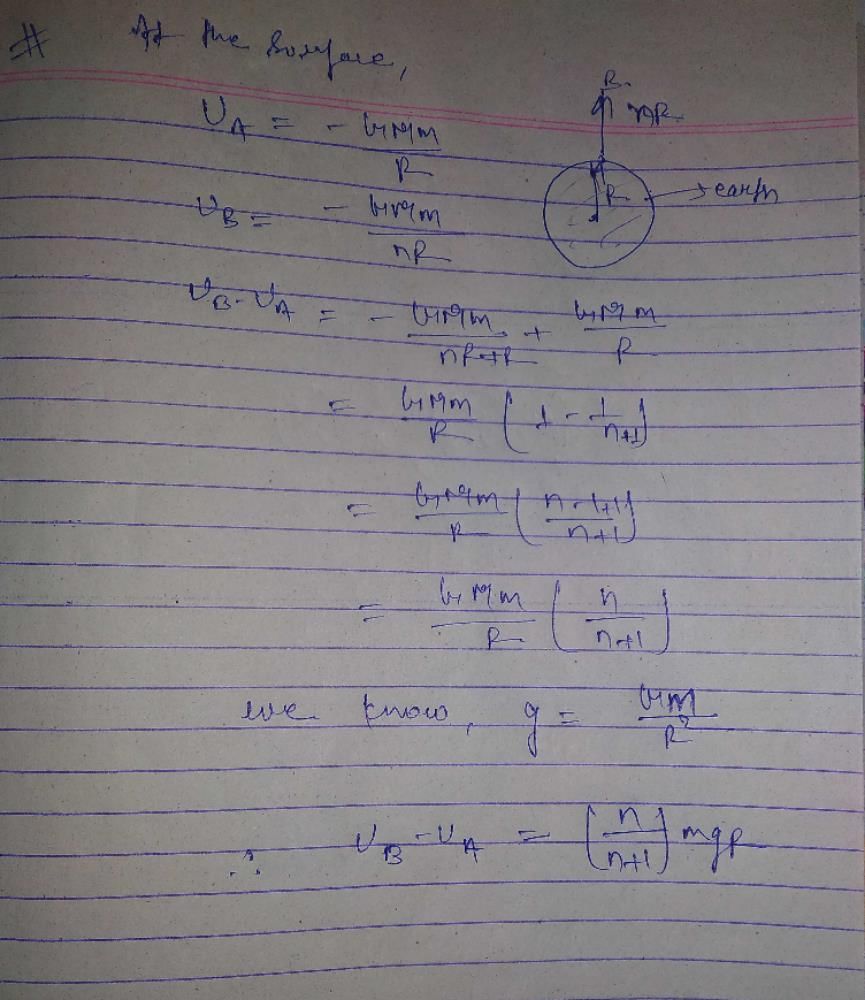 # At the surface,
U_A = - GMm/R
U_B = - GMm/nR
U_B - U_A = - GMm/nR+R + GMm/R
= GMm/R (1 - 1/n+1)
= GMm/R (n-1+1/n+1)
= GMm/R (n/n+1)
we know, g = GM/R²
∴ U_B - U_A = (n/n+1) mgR
B
nR
R
earth